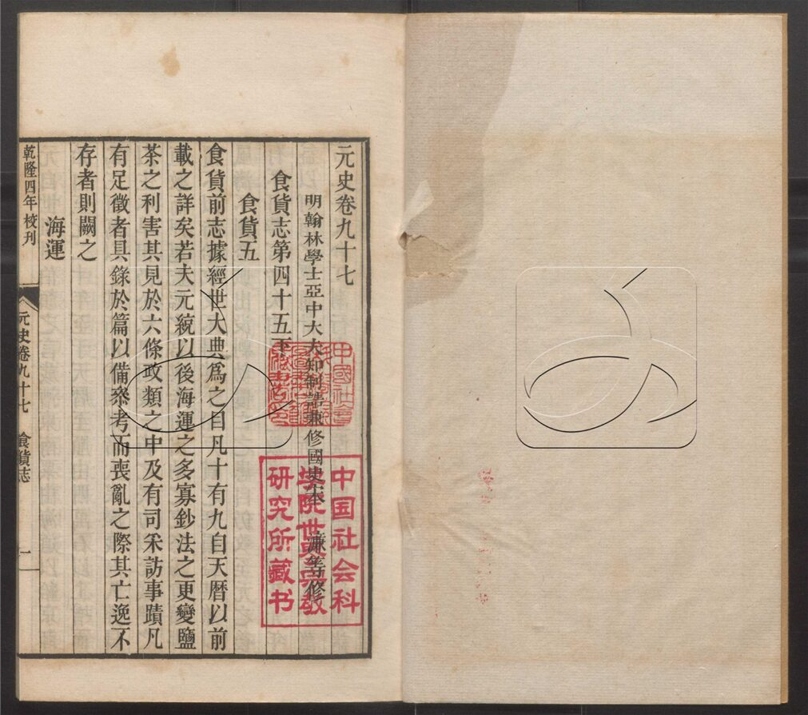 元史卷九十七
明翰林學士亞中大夫知制誥兼修國史宋濂等修
食貨志第四十五
食貨五
食貨前志據經世大典爲之目凡十有九自天曆以前
載之詳矣若夫元統以後海運之多寡鈔法之更變鹽
茶之利害其見於六條政類之中及有司采訪事蹟凡
有足徵者具錄於篇以備叅考而喪亂之際其亡逸不
存者則闕之
海運
乾隆四年校刊
元史卷九十七 食貨志
一
中国社会科
學院世界宗教
研究所藏书